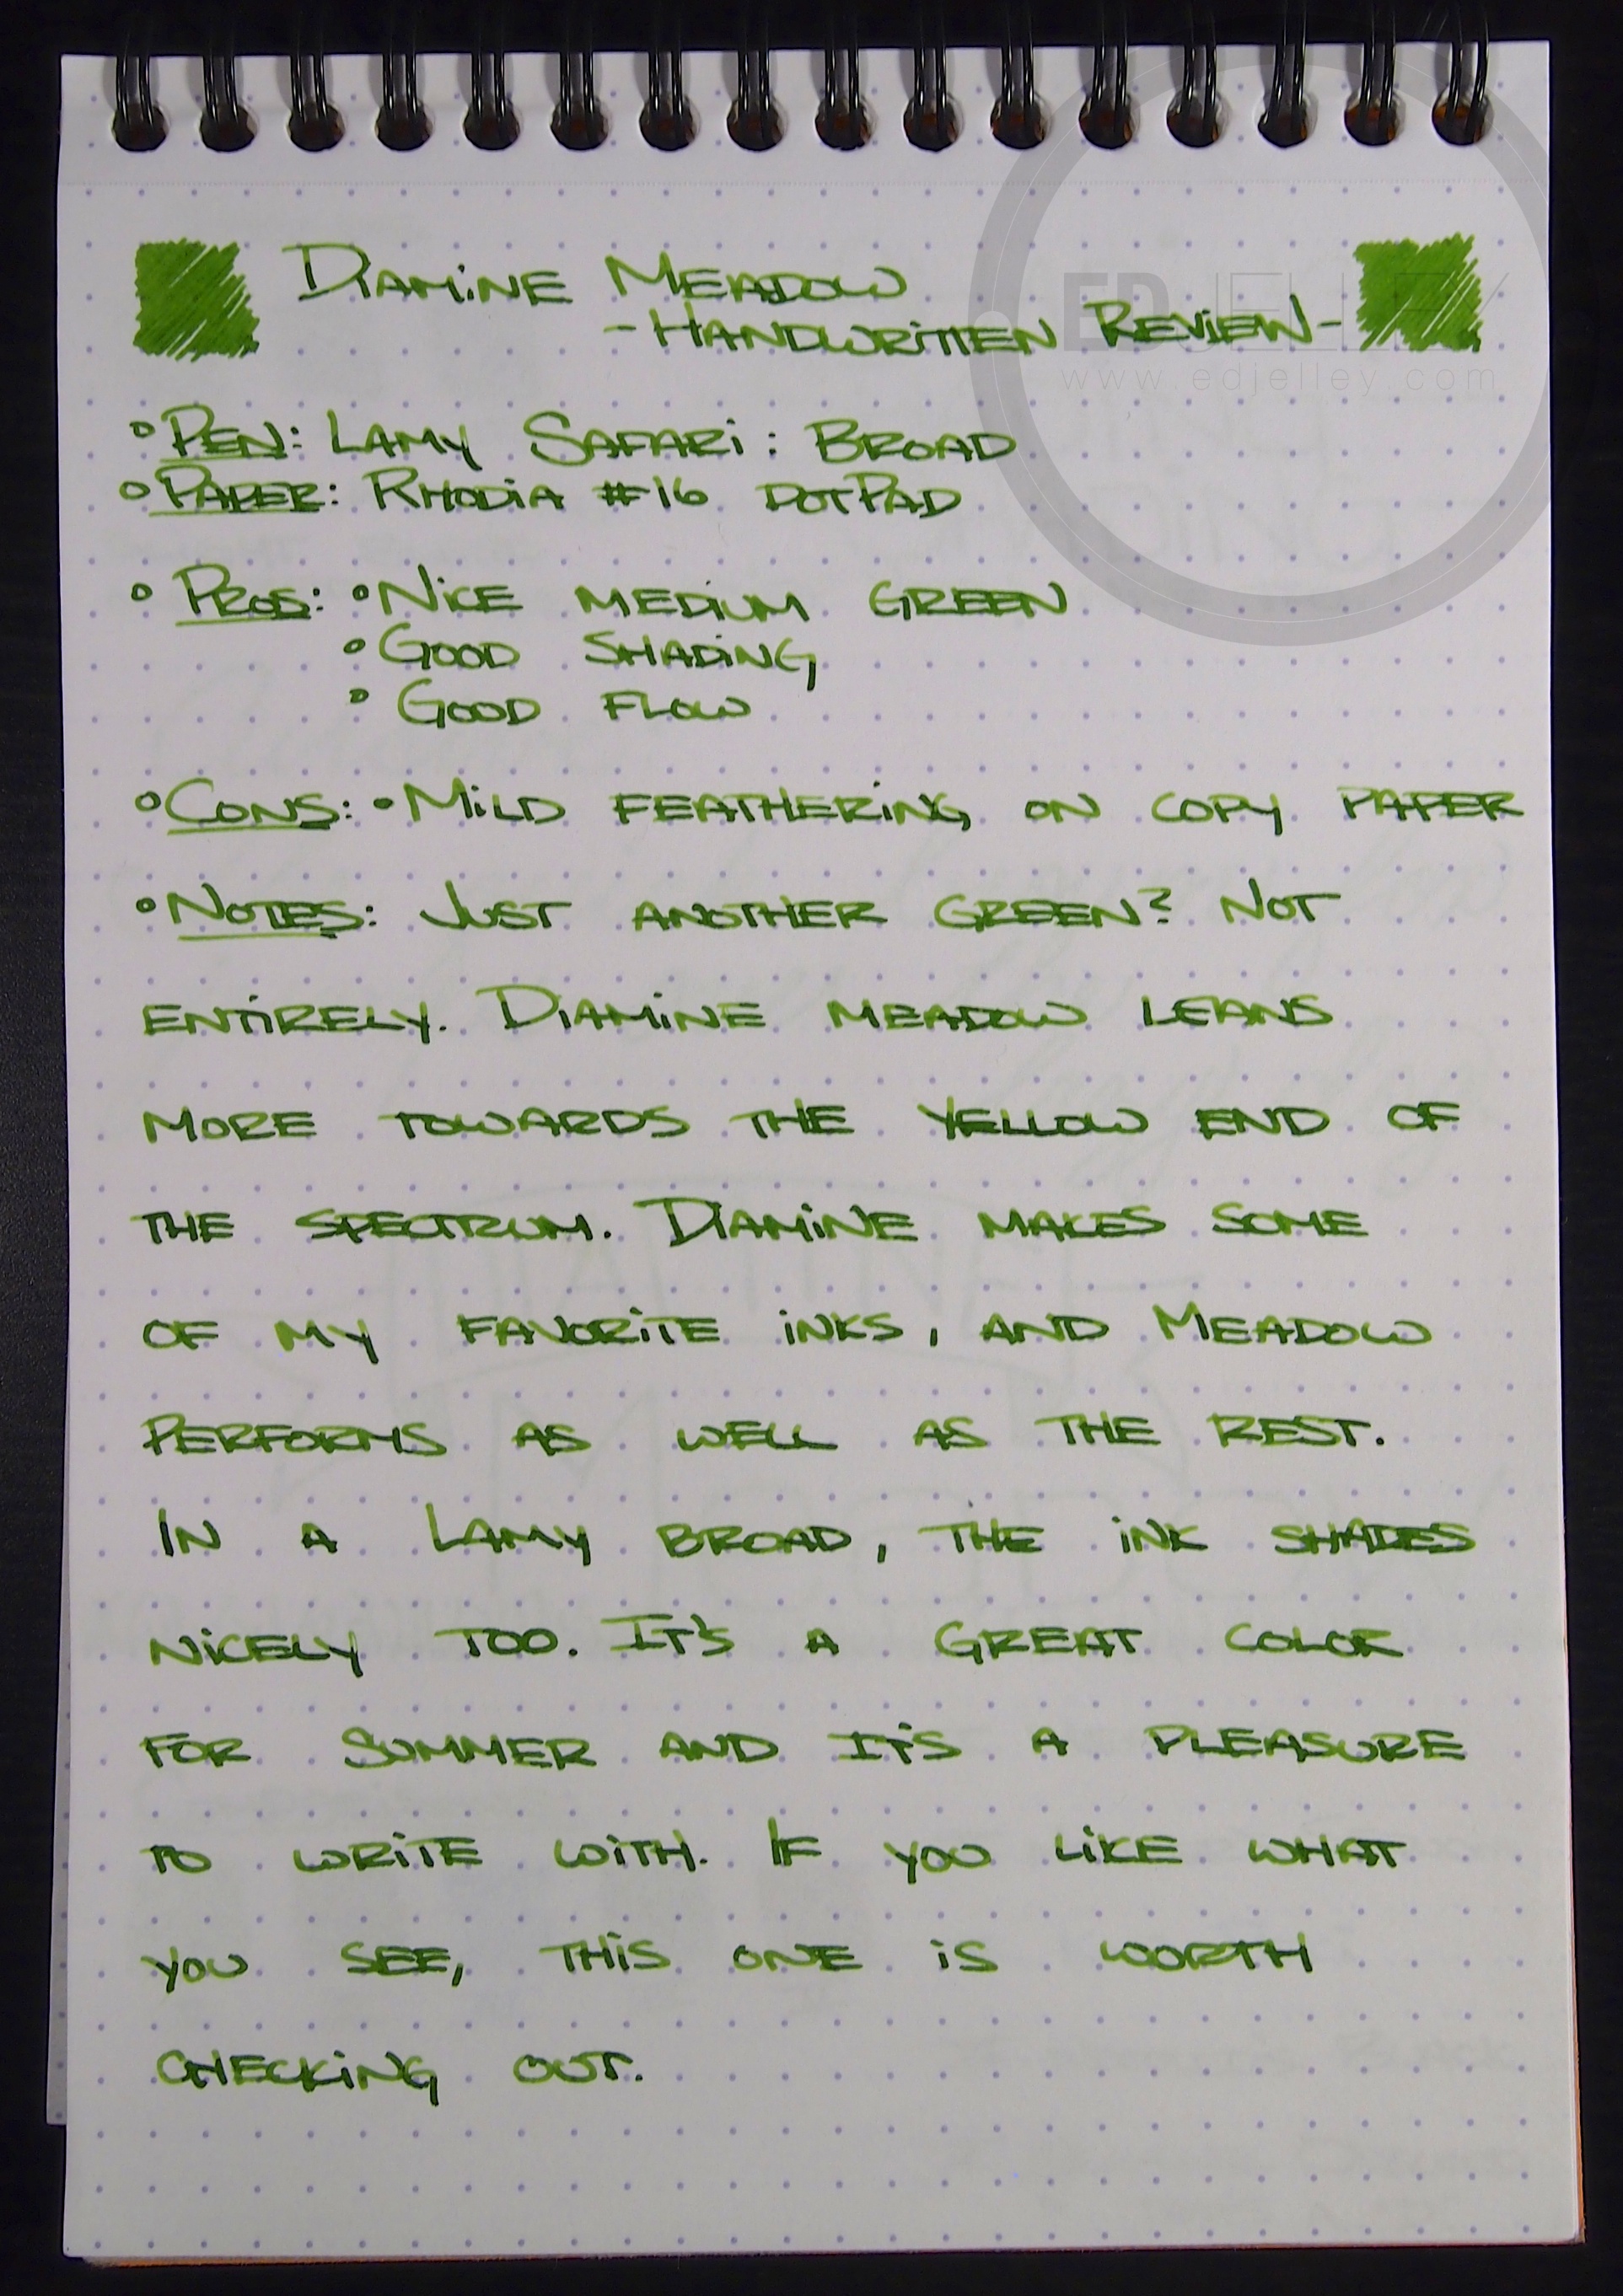 DIAMINE MEADOW
-HANDWRITTEN REVIEW-
ED JELLEY
www.edjelley.com
° PEN: LAMY SAFARI: BROAD
° PAPER: RHODIA #16 DOTPAD
° PROS: ° NICE MEDIUM GREEN
° GOOD SHADING
° GOOD FLOW
° CONS: ° MILD FEATHERING ON COPY PAPER
° NOTES: JUST ANOTHER GREEN? NOT
ENTIRELY. DIAMINE MEADOW LEANS
MORE TOWARDS THE YELLOW END OF
THE SPECTRUM. DIAMINE MAKES SOME
OF MY FAVORITE INKS, AND MEADOW
PERFORMS AS WELL AS THE REST.
IN A LAMY BROAD, THE INK SHADES
NICELY TOO. IT'S A GREAT COLOR
FOR SUMMER AND IT'S A PLEASURE
TO WRITE WITH. IF YOU LIKE WHAT
YOU SEE, THIS ONE IS WORTH
CHECKING OUT.